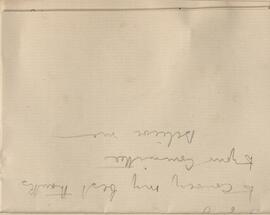 to convey my best thanks
to your Committee
Believe me